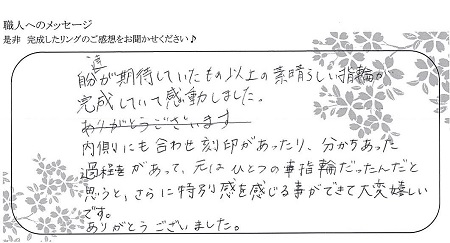 職人へのメッセージ
是非 完成したリングのご感想をお聞かせください♪
私達が期待していたもの以上の素晴らしい指輪が
完成していて感動しました。
ありがとうございます
内側にも合わせ刻印があったり、分かちあった
過程があって、元はひとつの指輪だったんだと
思うと、さらに特別感を感じる事ができて大変嬉しい
です。
ありがとうございました。